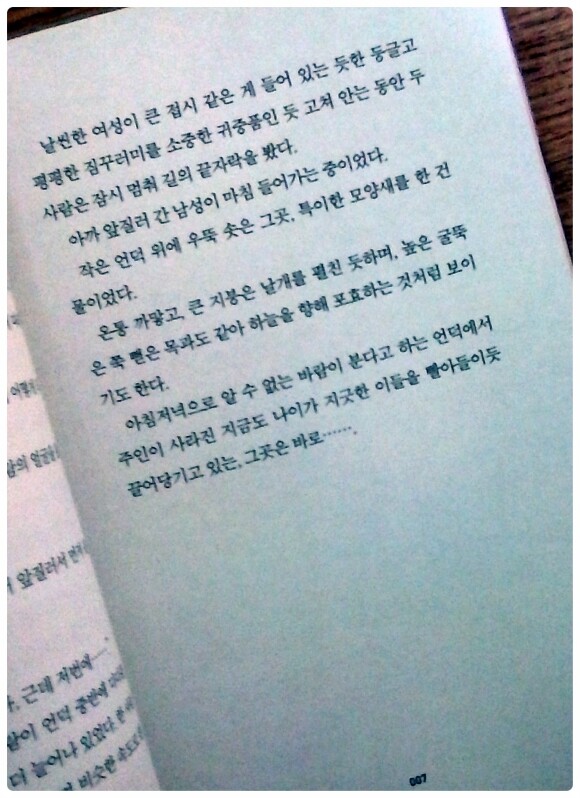 날씬한 여성이 큰 접시 같은 게 들어 있는 듯한 둥글고
평평한 짐꾸러미를 소중한 귀중품인 듯 고쳐 안는 동안 두
사람은 잠시 멈춰 길의 끝자락을 봤다.
아까 앞질러 간 남성이 마침 들어가는 중이었다.
작은 언덕 위에 우뚝 솟은 그곳, 특이한 모양새를 한 건
물이었다.
온통 까맣고, 큰 지붕은 날개를 펼친 듯하며, 높은 굴뚝
은 쭉 뻗은 목과도 같아 하늘을 향해 포효하는 것처럼 보이
기도 한다.
아침저녁으로 알 수 없는 바람이 분다고 하는 언덕에서
주인이 사라진 지금도 나이가 지긋한 이들을 빨아들이듯
끌어당기고 있는, 그곳은 바로…….
앞질러서 먼저
근데 저번에…….
언덕 중반에
더 늘어나 있었다.
비슷한 속도로
007